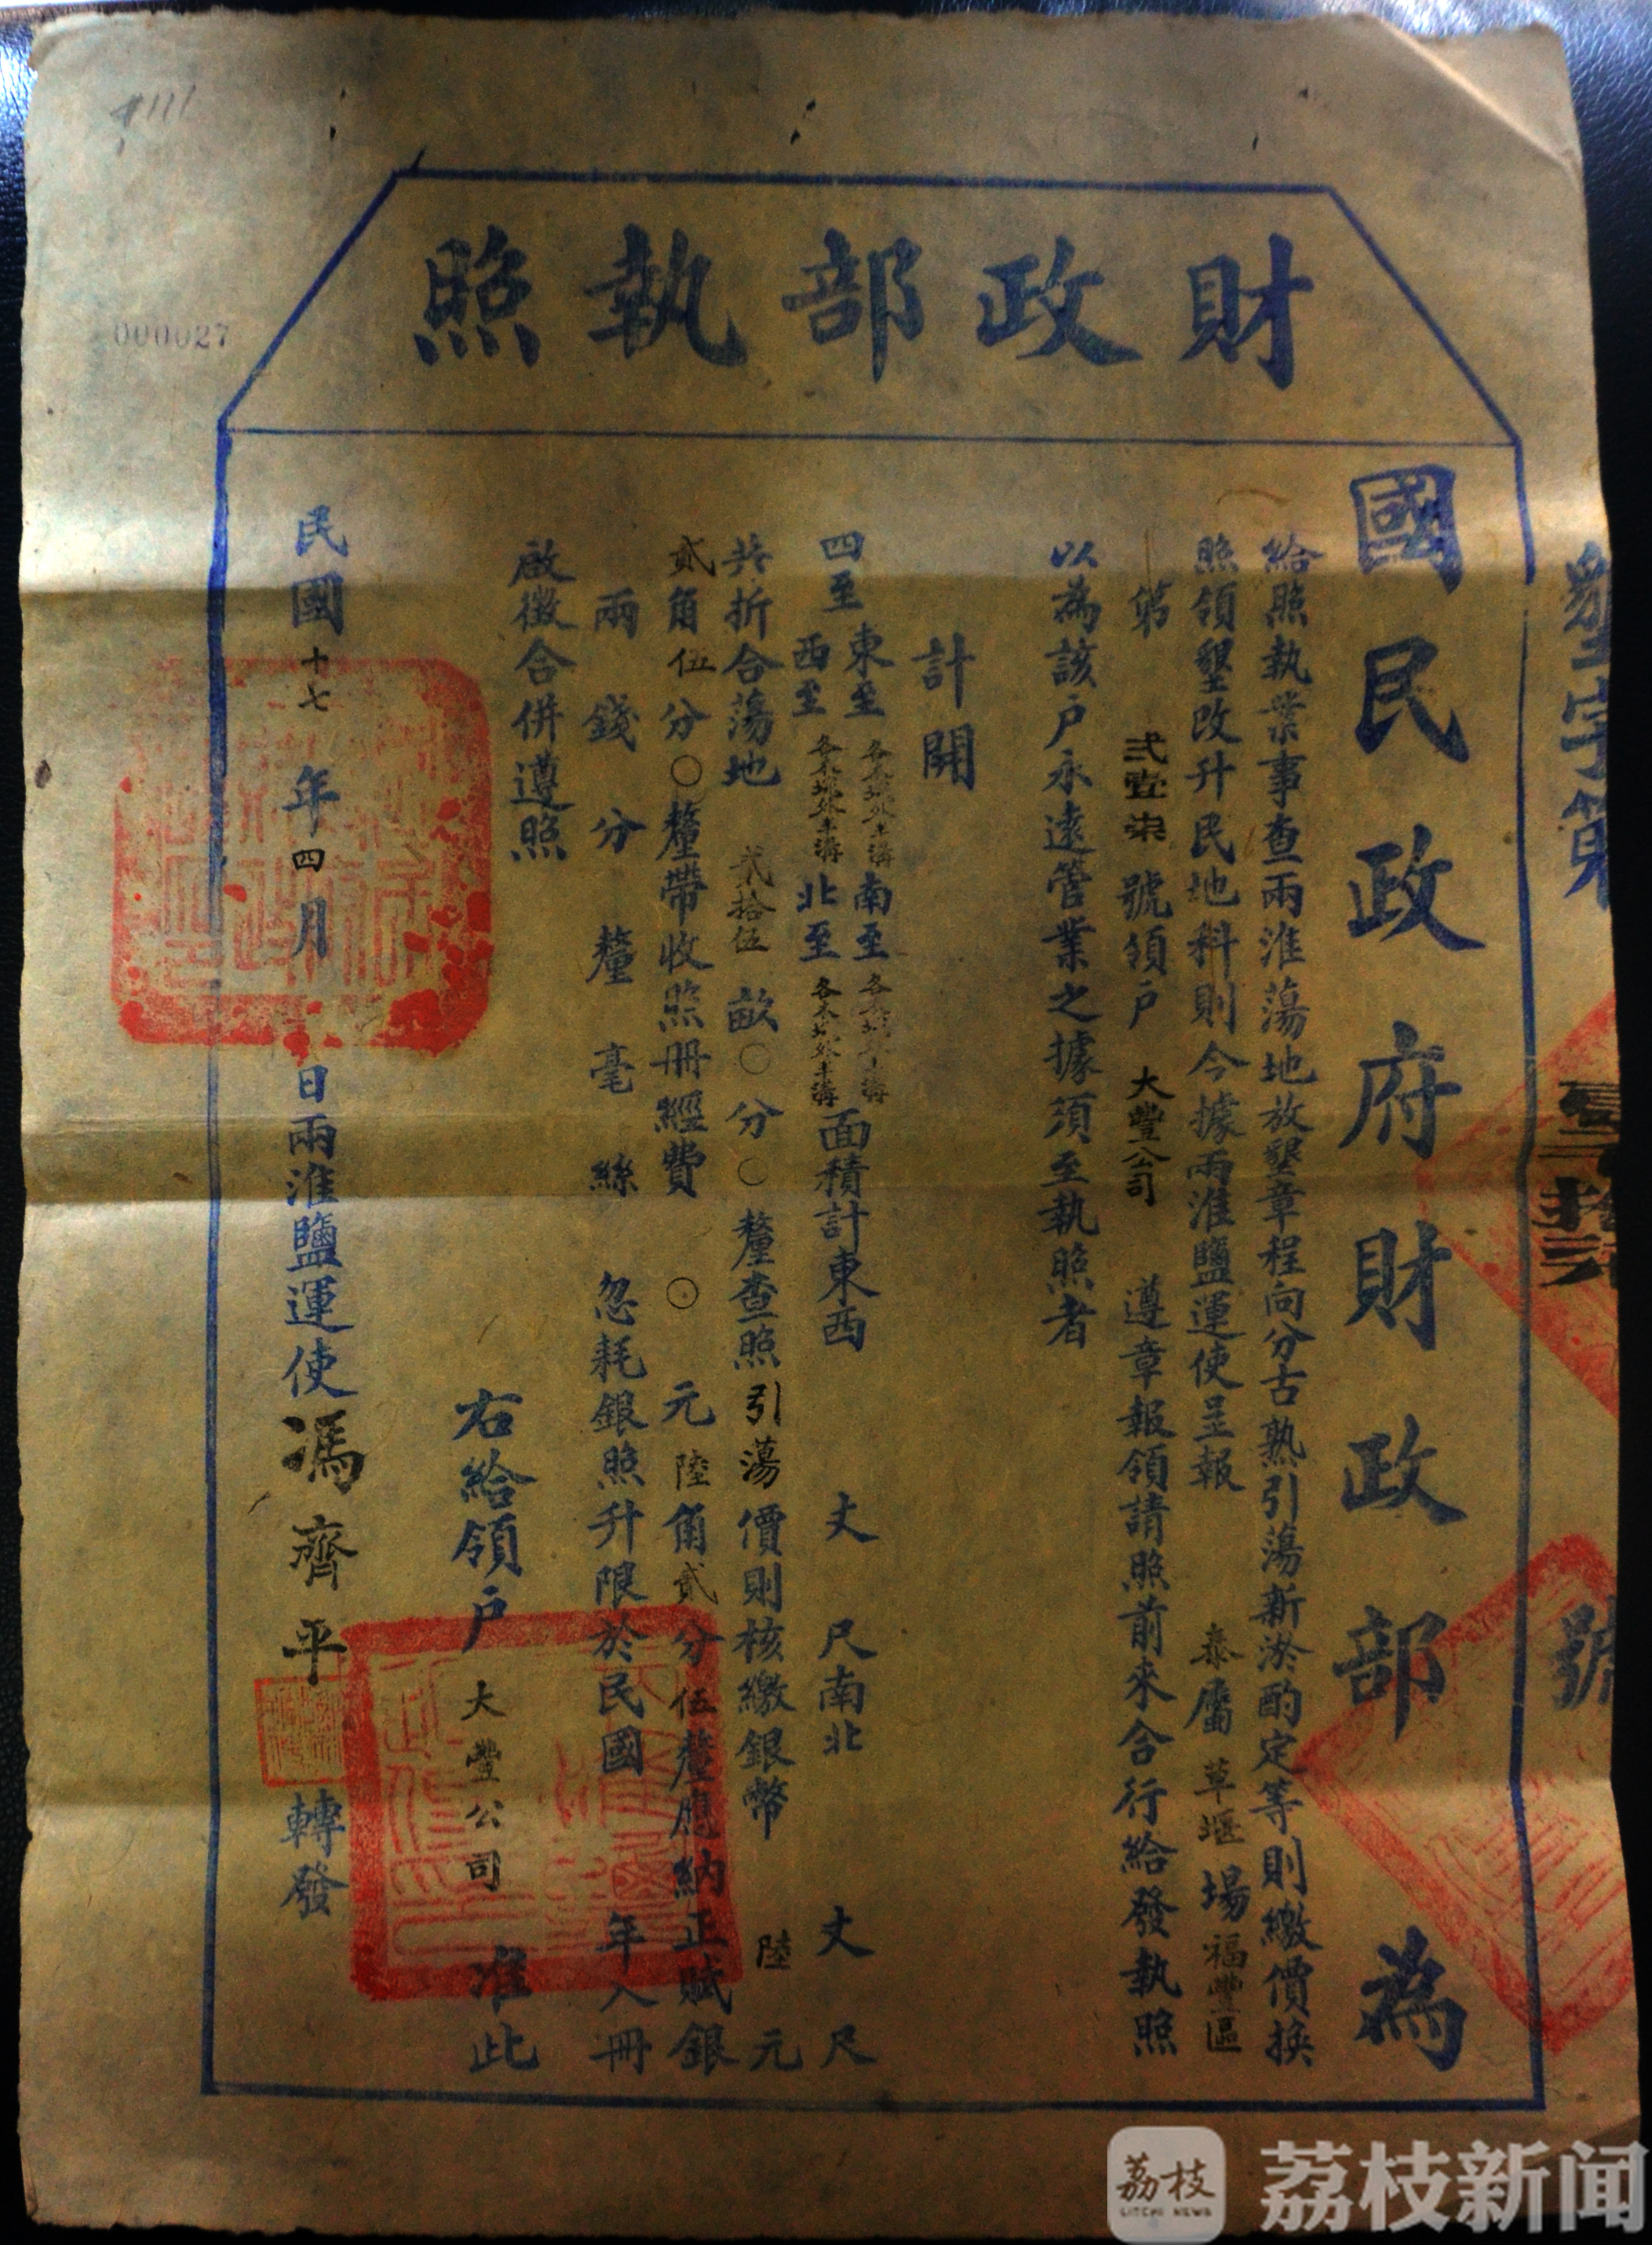 財政部執照
國民政府財政部為
給照執業事查兩淮蕩地放墾章程向分古熟引蕩新淤酌定等則繳價換
照領墾改升民地科則今據兩淮鹽運使呈報 泰屬草堰場福豐區
第 弍壹柒 號領戶 大豐公司 遵章報領請照前來合行給發執照
以為該戶永遠管業之據須至執照者
計開
四至 東至 南至 西至 北至 面積計東西 丈 尺南北 丈 尺
共折合蕩地 弍拾伍 畝〇分〇釐查照引蕩價則核繳銀幣 陸元
貳角伍分〇釐帶收照冊經費 〇 元陸角貳分伍釐應納正賦銀
兩 錢 分 釐 毫 絲 忽耗銀照升限於民國 年入冊
啟徵合併遵照
右給領戶 大豐公司 准此
民國十七年四月 日兩淮鹽運使馮齊平轉發
墾字第 號
000027
荔枝
LITCHI NEWS
荔枝新闻